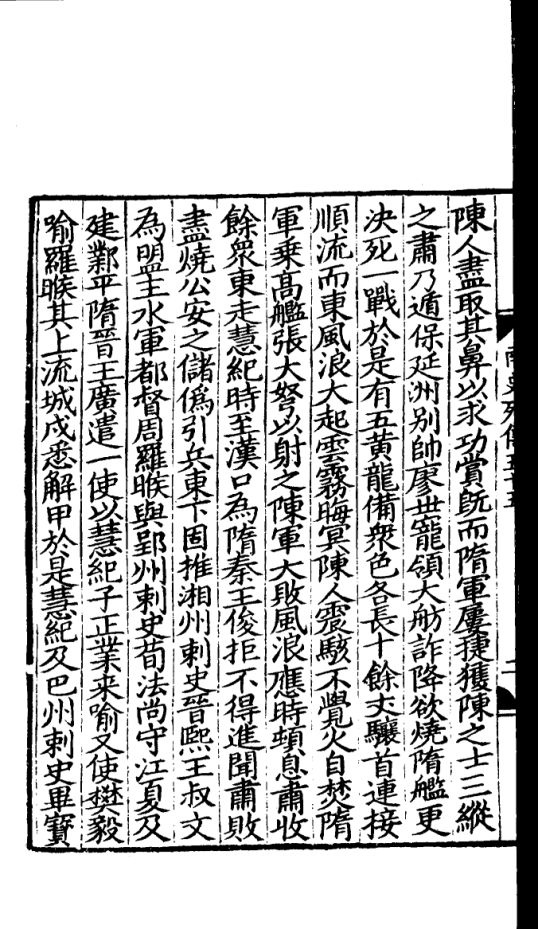 陳人盡取其鼻以求功賞既而隋軍屢捷獲陳之士三縱
之肅乃遁保延洲别帥廖世寵領大舫詐降欲燒隋艦更
決死一戰於是有五黄龍備衆色各長十餘丈驤首連接
順流而東風浪大起雲霧晦冥陳人震駭不覺火自焚隋
軍乗髙艦張大弩以射之陳軍大敗風浪應時頓息肅收
餘衆東走慧紀時至漢口為隋秦王俊拒不得進聞肅敗
盡燒公安之儲僞引兵東下固推湘州刺史晉熈王叔文
為盟主水軍都督周羅睺與郢州刺史荀法尚守江夏及
建鄴平隋晉王廣遣一使以慧紀子正業来喻又使樊毅
喻羅睺其上流城戍悉解甲於是慧紀及巴州刺史畢寳